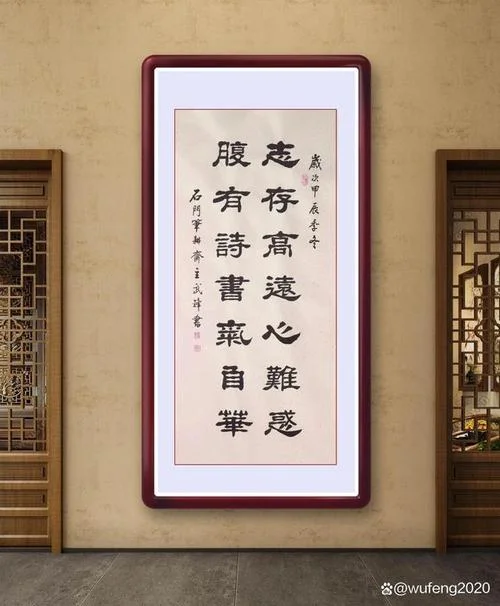 歲次甲辰季冬
志存高遠心難惑
腹有詩書氣自華
石門筆耕齋主武鋒書
@wufeng2020